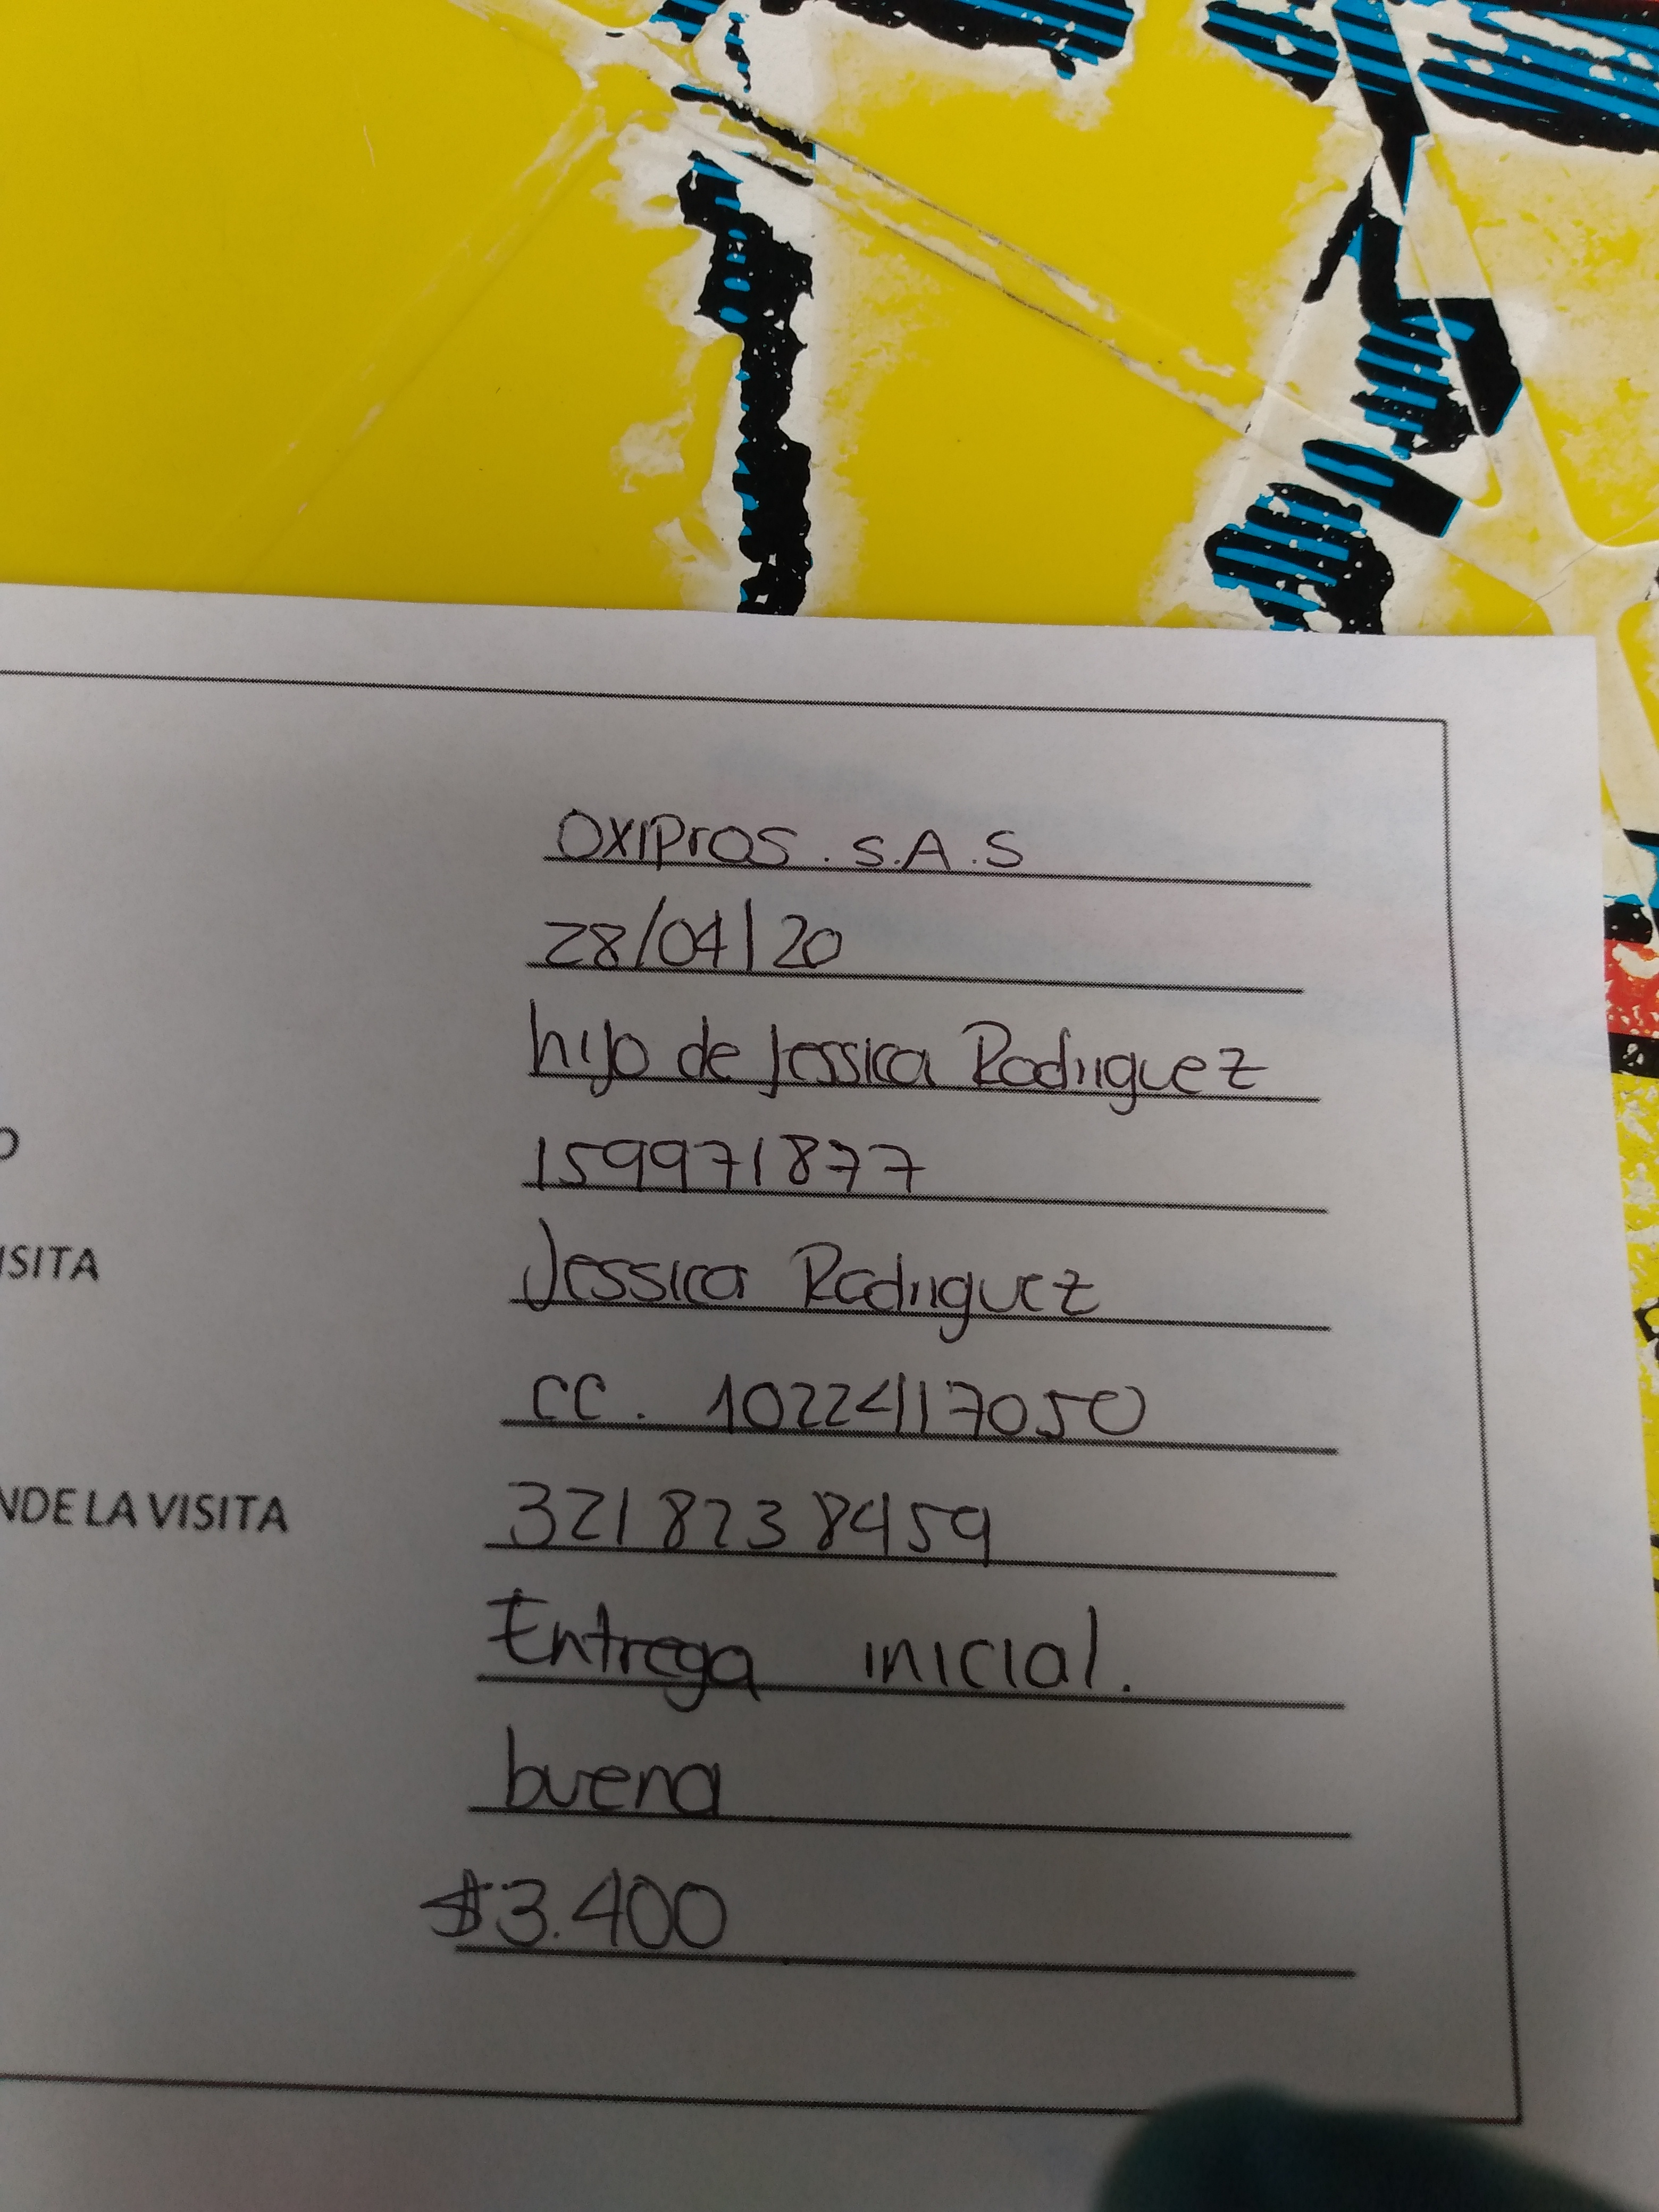 OXIPROS. S.A.S
28/04/20
hijo de Jessica Rodriguez
159971877
ISITA Jessica Rodriguez
CC. 1022417050
NDE LA VISITA 3218238459
Entrega inicial.
buena
$3.400